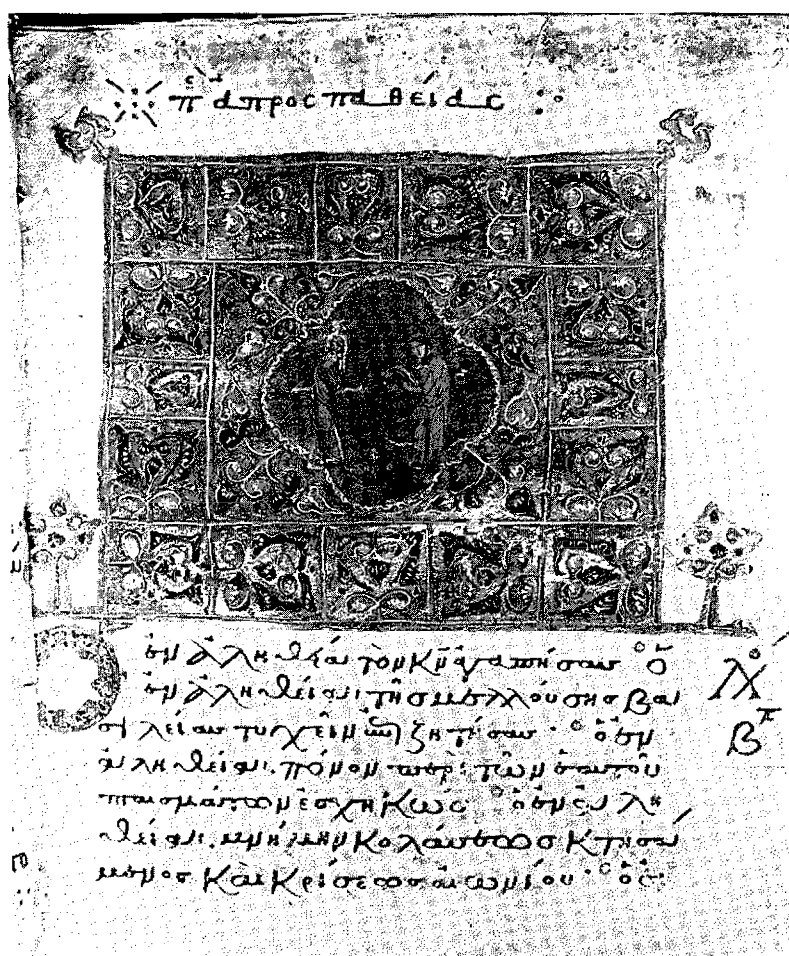 π ἀπροσπαθείας
Ὁ ἐν ἀληθείαι τὸν κν ἀγαπήσας · ὁ
ἐν ἀληθείαι τῆς μελλούσης βα
σιλείας τυχεῖν ἐπιζητήσας · ὁ ἐν
ἀληθείαι πόνον περὶ τῶν ἑαυτοῦ
πταισμάτων ἐσχηκώς · ὁ ἐν ἀλη
θείαι μνήμην κολάσεως κτησά
μενος καὶ κρίσεως αἰωνίου · ὁ
λό
β